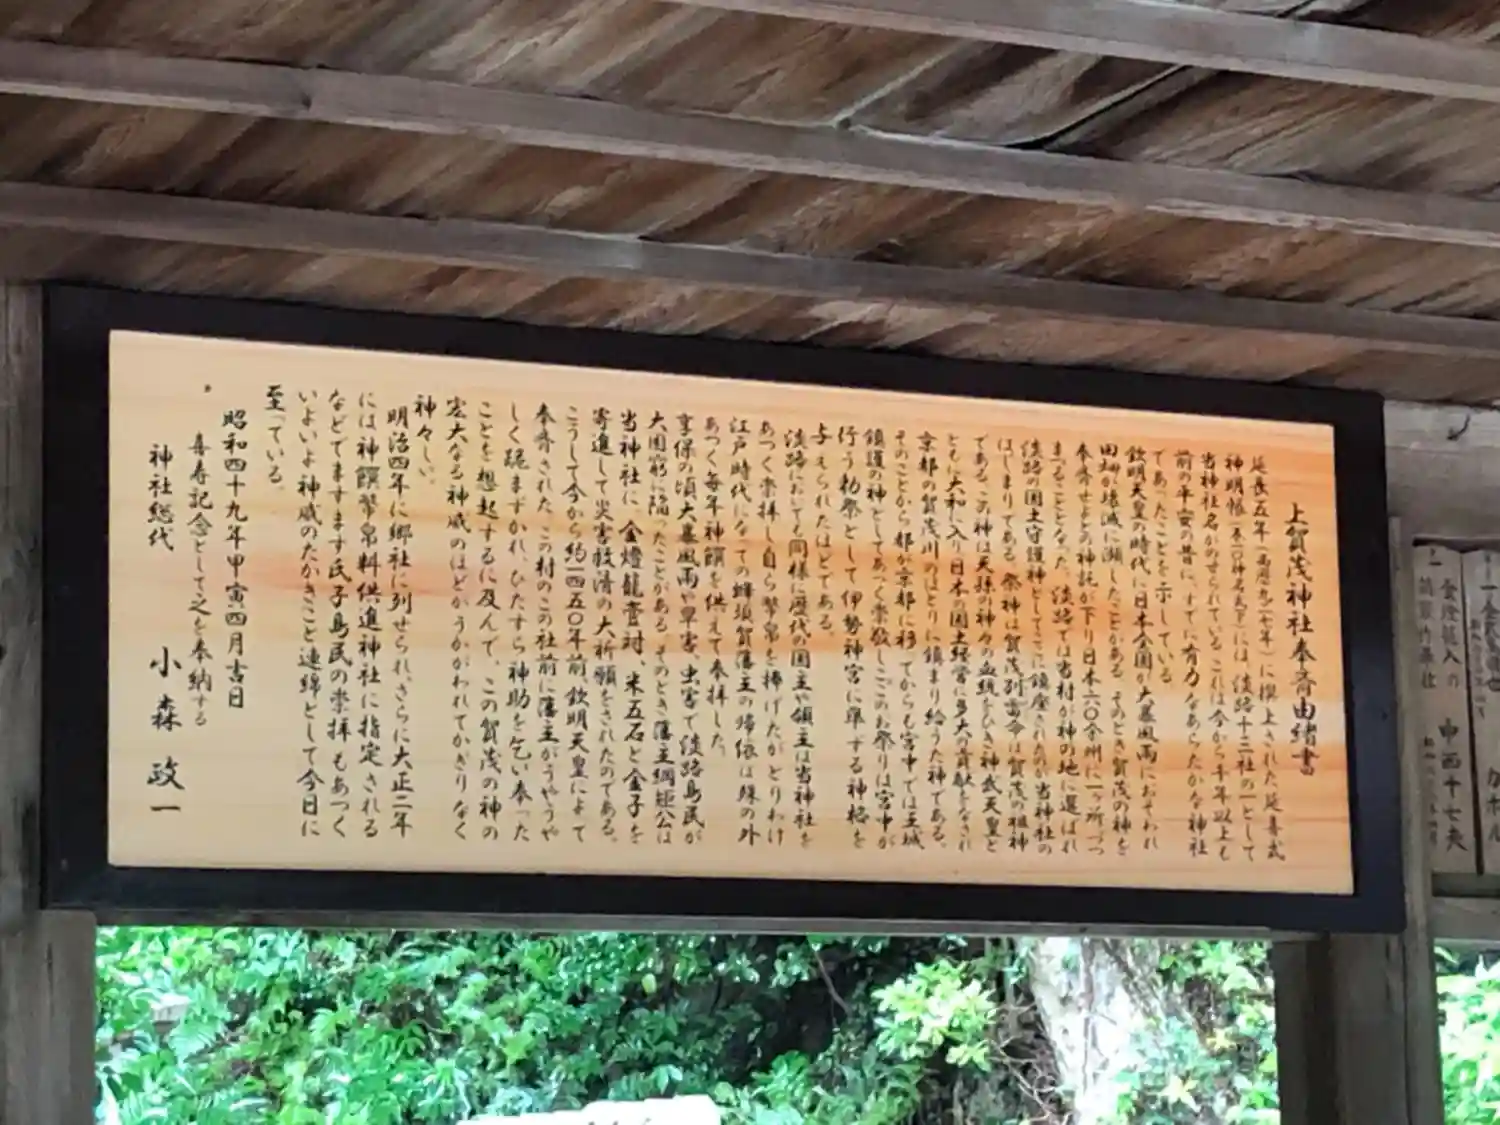 上賀茂神社奉斎由緒書
延長五年(西暦九二七年)に撰上された、延喜式
神明帳(巻一〇神名式下)には、淡路十三社の一として
当神社名がのせられている これは今から千年以上も
前の平安の昔に、すでに有力なあらたかな神社
であったことを示している
欽明天皇の時代に日本全国が大暴風雨におそわれ
田畑が壊滅に瀕したことがある。そのとき賀茂の神を
奉斎せよとの神託が下り日本六〇余州に一ヶ所づつ
まつることとなった、淡路では当村が神の地に選ばれ
淡路の国土守護神としてここに鎮座されたのが当神社の
はじまりである。祭神は賀茂別雷命は賀茂の祖神
である。この神は天孫の神々の血統をひき神武天皇と
ともに大和に入り日本の国土経営に多大の貢献をなされ
京都の賀茂川のほとりに鎮まり給うた神である。
そのことから都が京都に移ってからも宮中では王城
鎮護の神としてあつく崇敬しここのお祭りは宮中が
行う勅祭として伊勢神宮に準ずる神格を
与えられたほどである。
淡路においても同様に歴代の国主や領主は当神社を
あつく崇拝し自ら幣帛を捧げたがとりわけ
江戸時代になっての蜂須賀藩主の帰依は殊の外
あつく毎年神饌を供えて奉拝した。
享保の頃大暴風雨や旱害、虫害で淡路島民が
大困窮に陥ったことがある そのとき藩主綱矩公は
当神社に、金燈籠壹対、米五石と金子を
寄進して災害救済の大祈願をされたのである。
こうして今から約一四五〇年前、欽明天皇によって
奉斎された、この村のこの社前に藩主がうやうや
しく跪まずかれ、ひたすら神助を乞い奉った
ことを想起するに及んで、この賀茂の神の
宏大なる神威のほどがうかがわれてかぎりなく
神々しい。
明治四年に郷社に列せられ、さらに大正二年
には神饌幣帛料供進神社に指定される
などでますます氏子島民の崇拝もあつく
いよいよ神威のたかきこと連綿として今日に
至っている。
昭和四十九年甲寅四月吉日
喜寿記念として之を奉納する
神社総代 小森 政一
金燈籠入の 中西十七夫